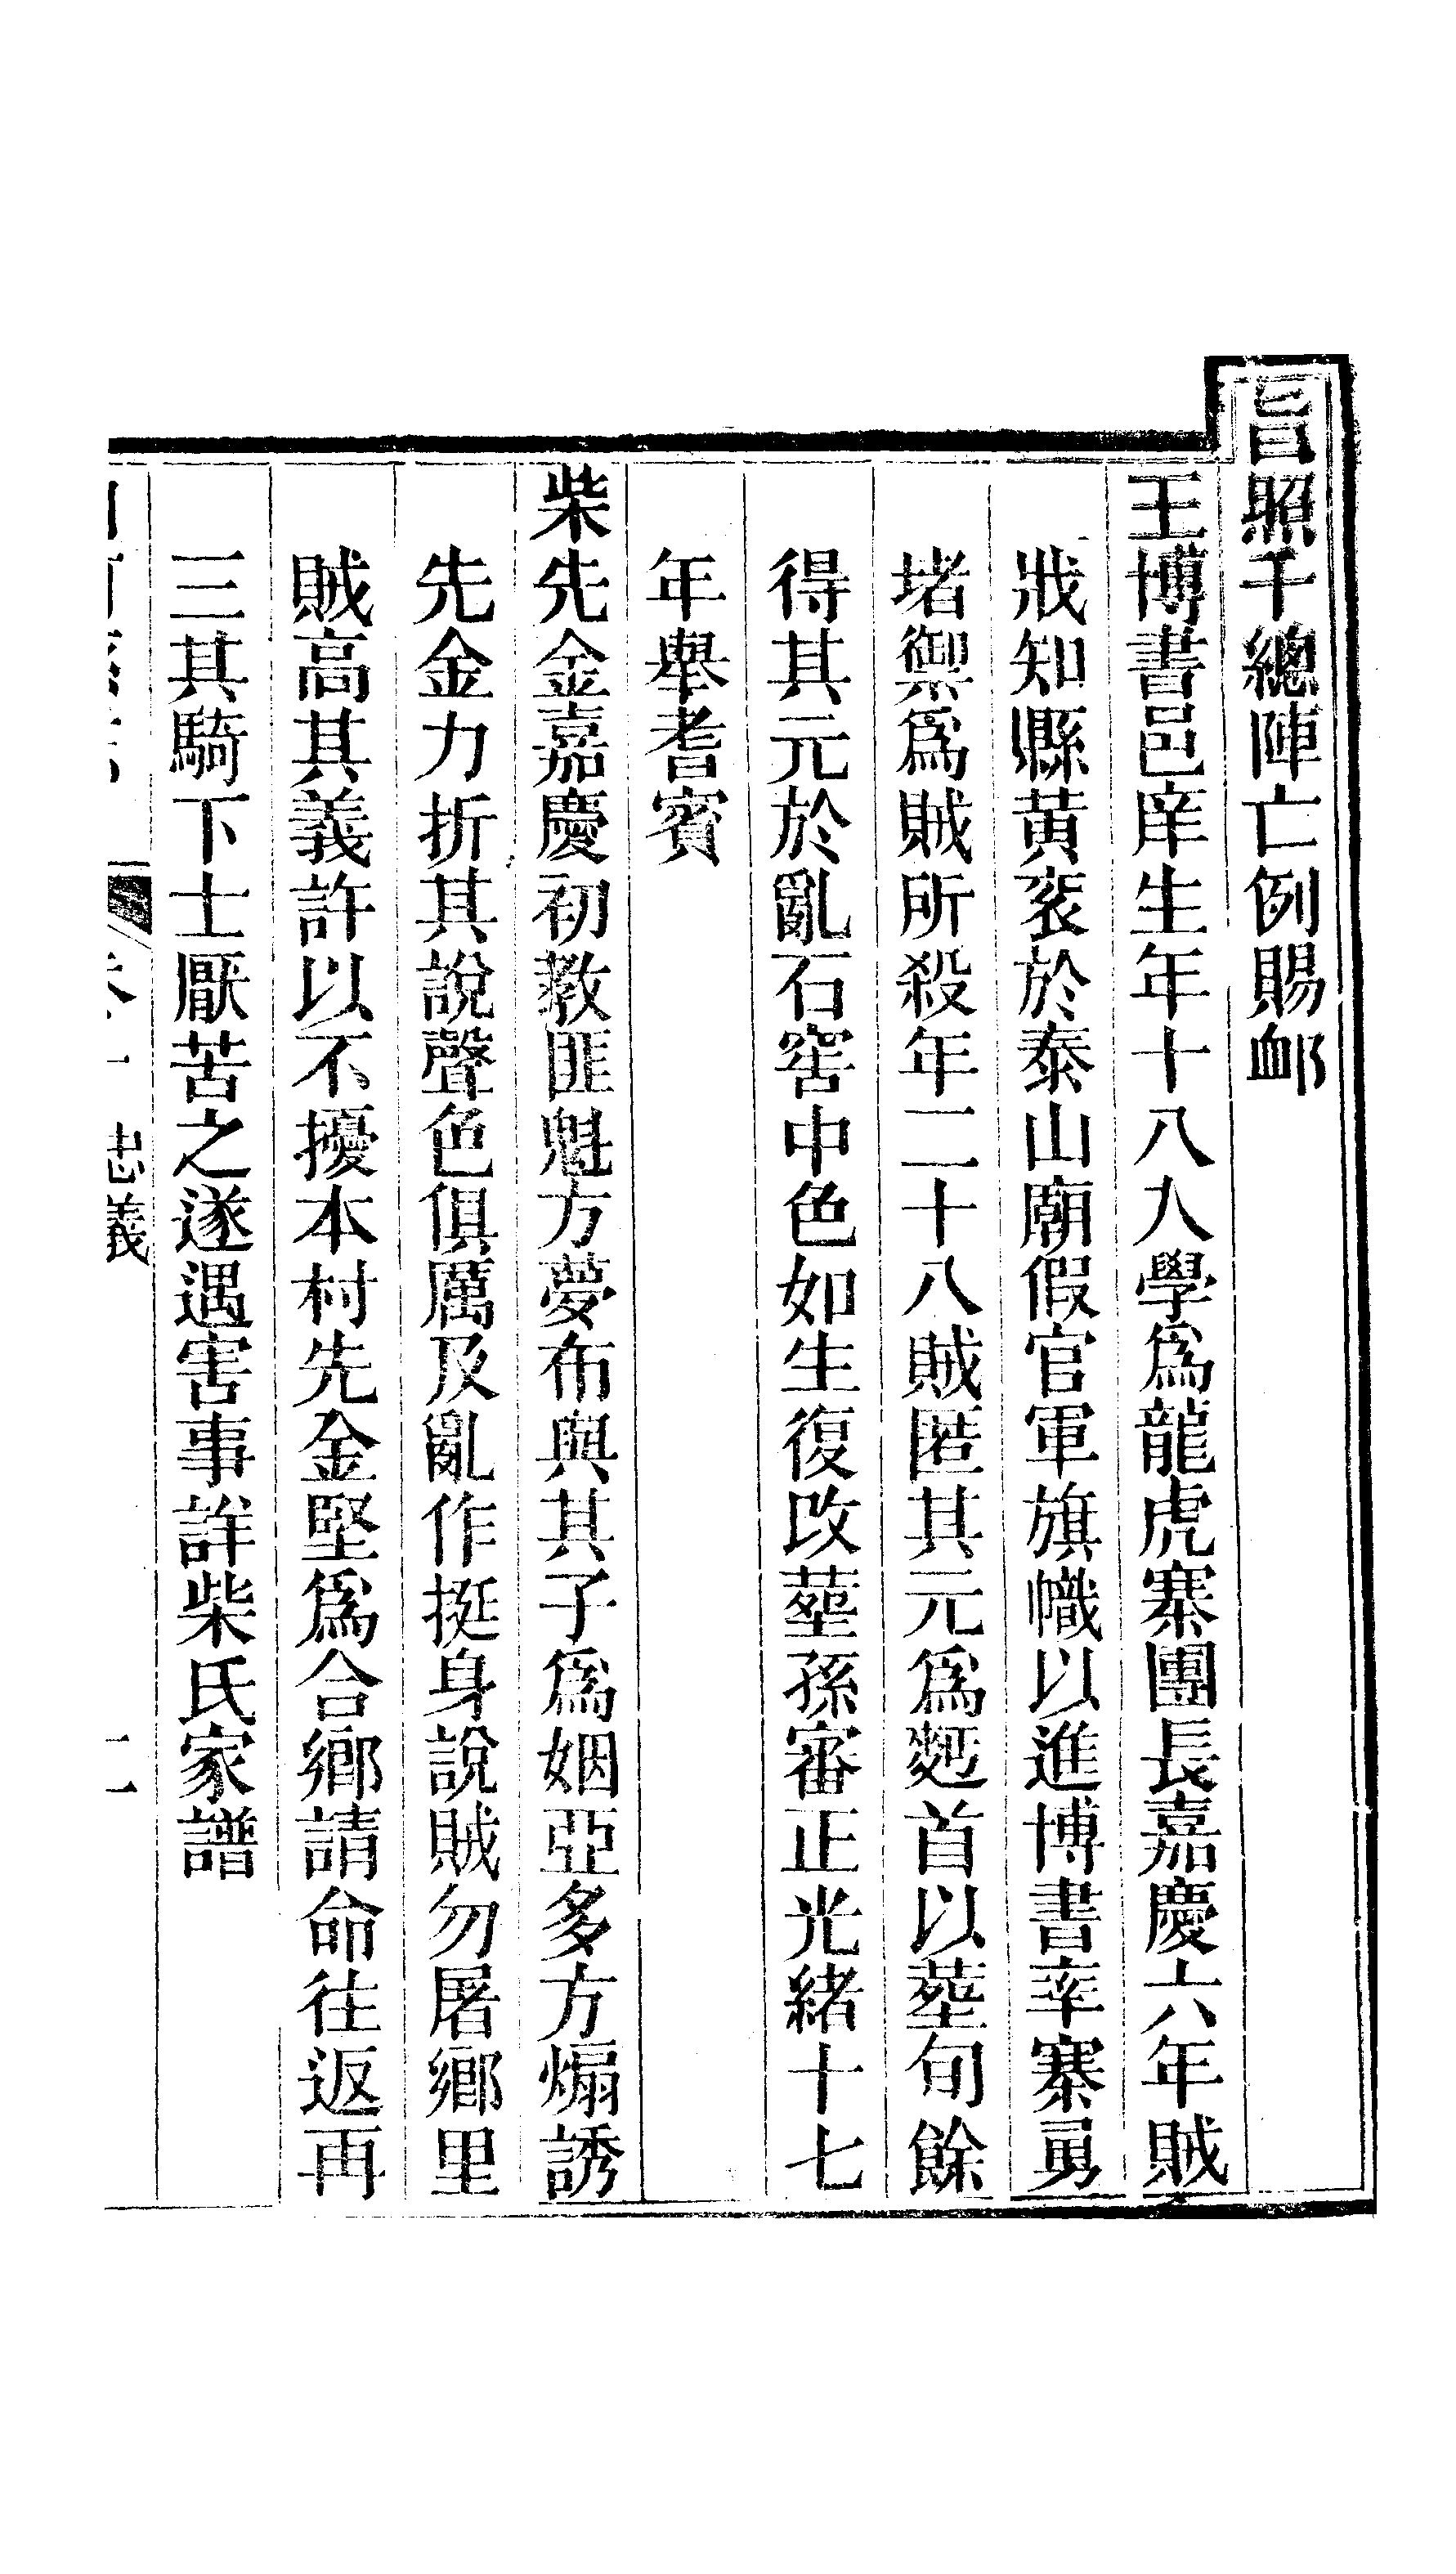 旨照千總陣亡例賜卹
王博書邑庠生年十八入學爲龍虎寨團長嘉慶六年賊
戕知縣黃袞於泰山廟假官軍旗幟以進博書率寨勇
堵禦爲賊所殺年二十八賊匿其元爲麪首以塟旬餘
得其元於亂石窖中色如生復改塟孫審正光緒十七
年舉耆賓
柴先金嘉慶初教匪魁方夢布與其子爲姻亞多方煽誘
先金力折其說聲色俱厲及亂作挺身說賊勿屠鄉里
賊高其義許以不擾本村先金堅爲合鄉請命往返再
三其騎下士厭苦之遂遇害事詳柴氏家譜
忠義